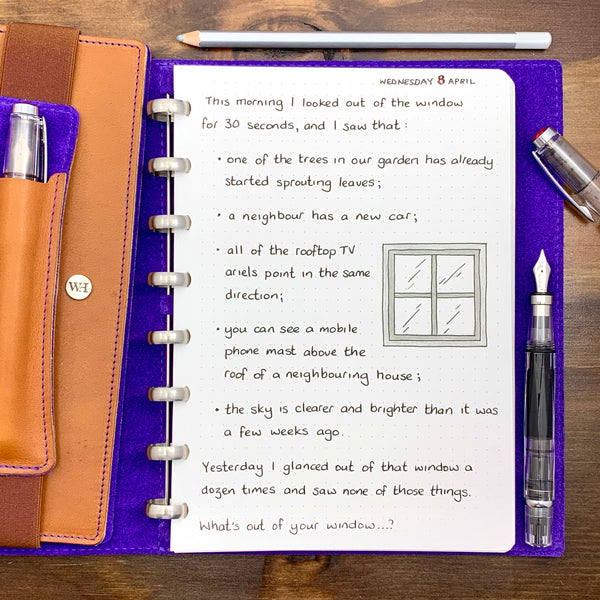 WH
WEDNESDAY 8 APRIL
This morning I looked out of the window
for 30 seconds, and I saw that:
• one of the trees in our garden has already
started sprouting leaves;
• a neighbour has a new car;
• all of the rooftop TV
ariels point in the same
direction;
• you can see a mobile
phone mast above the
roof of a neighbouring house;
• the sky is clearer and brighter than it was
a few weeks ago.
Yesterday I glanced out of that window a
dozen times and saw none of those things.
What's out of your window...?